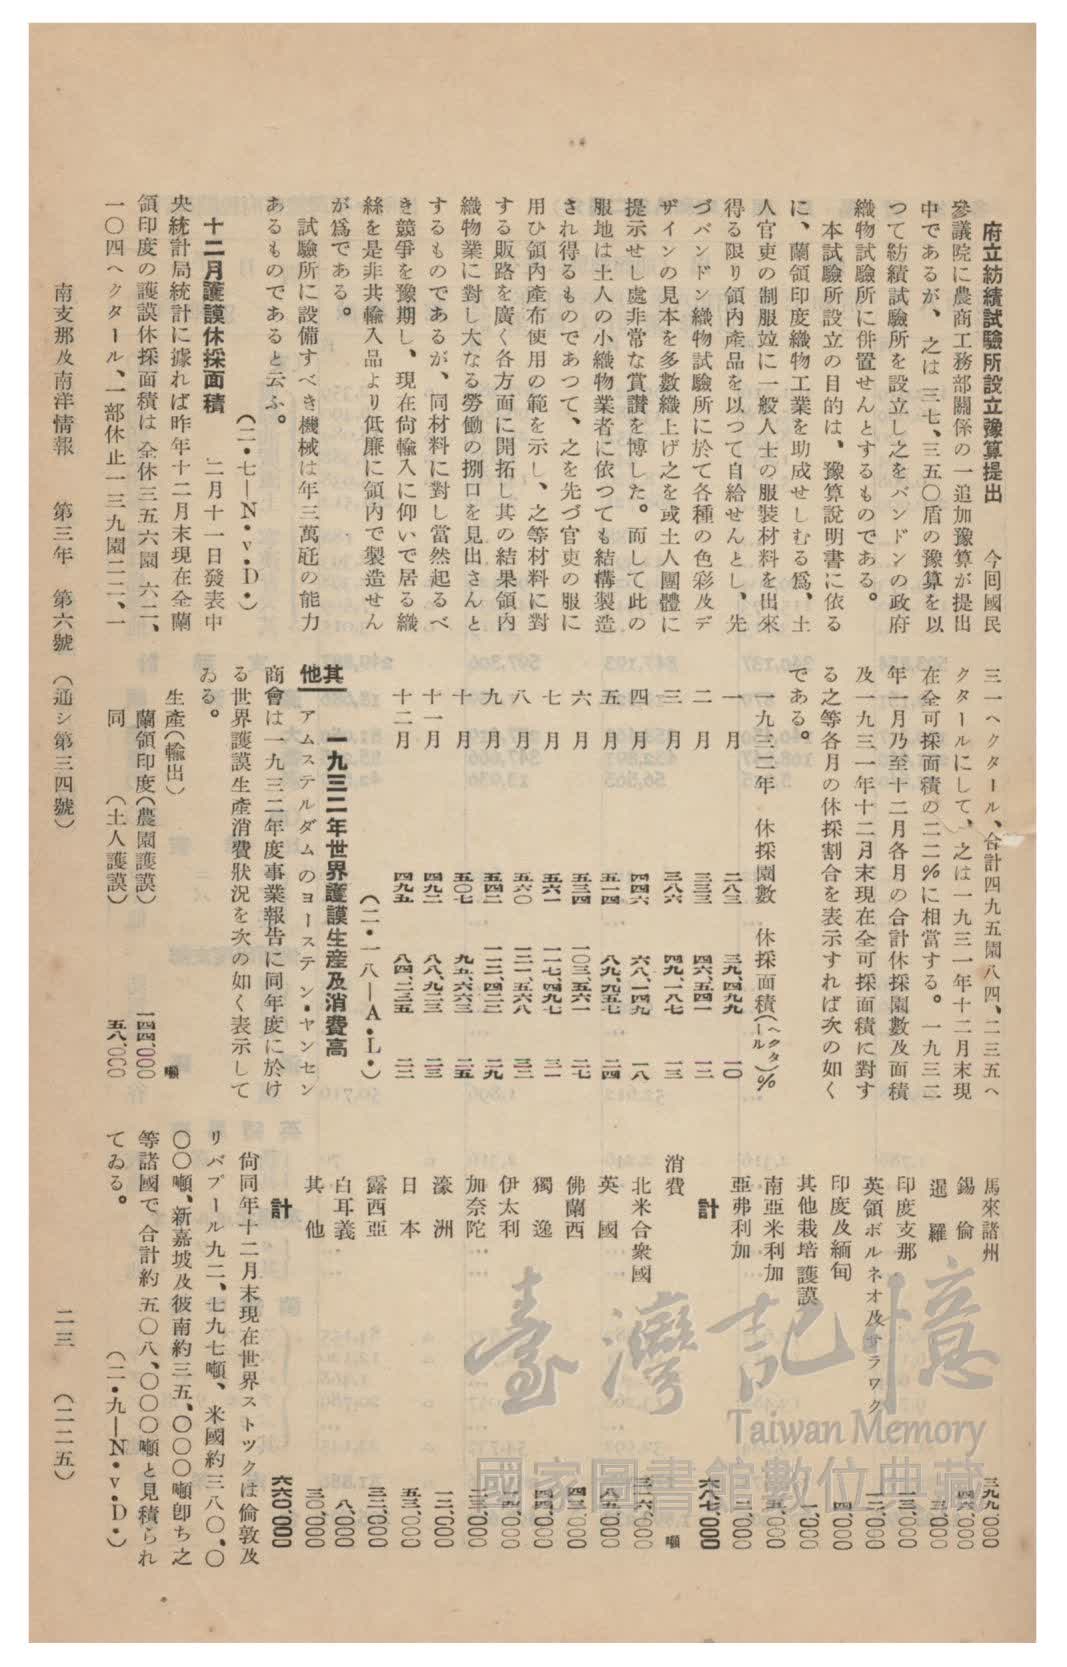 府立紡績試驗所設立豫算提出　今回國民
參議院に農商工務部關係の一追加豫算が提出
中であるが、之は三七、三五〇盾の豫算を以
つて紡績試驗所を設立し之をバンドンの政府
織物試驗所に倂置せんとするものである。
本試驗所設立の目的は、豫算說明書に依る
に、蘭領印度織物工業を助成せしむる爲、土
人官吏の制服竝に一般人士の服裝材料を出來
得る限り領內產品を以つて自給せんとし、先
づバンドン織物試驗所に於て各種の色彩及デ
ザインの見本を多數織上げ之を或土人團體に
提示せし處非常な賞讚を博した。而して此の
服地は土人の小織物業者に依つても結構製造
され得るものであつて、之を先づ官吏の服に
用ひ領內產布使用の範を示し、之等材料に對
する販路を廣く各方面に開拓し其の結果領內
織物業に對し大なる勞働の捌口を見出さんと
するものであるが、同材料に對し當然起るべ
き競爭を豫期し、現在尙輸入に仰いで居る織
絲を是非共輸入品より低廉に領內で製造せん
が爲である。
試驗所に設備すべき機械は年三萬瓩の能力
あるものであると云ふ。
（二・七―N・v・D・）
十二月護謨休採面積　二月十一日發表中
央統計局統計に據れば昨年十二月末現在全蘭
領印度の護謨休採面積は全休三五六園六二、
一〇四ヘクタール、一部休止一三九園二二、一
三一ヘクタール、合計四九五園八四、二三五ヘ
クタールにして、之は一九三一年十二月末現
在全可採面積の二二％に相當する。一九三二
年一月乃至十二月各月の合計休採園數及面積
及一九三一年十二月末現在全可採面積に對す
る之等各月の休採割合を表示すれば次の如く
である。
一九三二年　休採園數　休採面積（ヘクタール）％
一月　二八三　三九、四九九　一〇
二月　三三三　四六、五四一　一二
三月　三八六　四九、一八七　一三
四月　四四六　六八、一四九　一八
五月　五一四　八九、九五七　二四
六月　五三四　一〇三、五六一　二七
七月　五六一　一一七、四九七　三一
八月　五六〇　一二一、五六八　三二
九月　五四二　一一二、四二二　二九
十月　五〇七　九五、六六三　二五
十一月　四九二　八八、九二三　二三
十二月　四九五　八四、二三五　二二
（二・一八―A・L・）
其他　一九三二年世界護謨生產及消費高
アムステルダムのヨーステン・ヤンセン
商會は一九三二年度事業報告に同年度に於け
る世界護謨生產消費狀況を次の如く表示して
ゐる。
生產（輸出）　噸
蘭領印度（農園護謨）　一四四、〇〇〇
同　（土人護謨）　五八、〇〇〇
馬來諸州　三九九、〇〇〇
錫倫　四六、〇〇〇
暹羅　三、〇〇〇
印度支那　一三、〇〇〇
英領ボルネオ及サラワク　一二、〇〇〇
印度及緬甸　四、〇〇〇
其他栽培護謨　一、〇〇〇
南亞米利加　五、〇〇〇
亞弗利加　二、〇〇〇
計　六八七、〇〇〇
消費　噸
北米合衆國　三一六、〇〇〇
英國　八五、〇〇〇
佛蘭西　四三、〇〇〇
獨逸　四四、〇〇〇
伊太利　一四、〇〇〇
加奈陀　二三、〇〇〇
濠洲　一二、〇〇〇
日本　五三、〇〇〇
露西亞　三二、〇〇〇
白耳義　八、〇〇〇
其他　三〇、〇〇〇
計　六六〇、〇〇〇
尙同年十二月末現在世界ストツクは倫敦及
リバプール九二、七九七噸、米國約三八〇、〇
〇〇噸、新嘉坡及彼南約三五、〇〇〇噸卽ち之
等諸國で合計約五〇八、〇〇〇噸と見積られ
てゐる。
（二・九―N・v・D・）
南支那及南洋情報　第三年　第六號　（通シ第三四號）　二三　（二二五）
臺灣記憶
Taiwan Memory
國家圖書館數位典藏